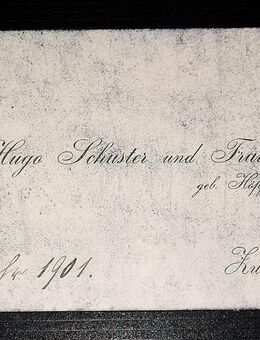 Hugo Schuster und Frau
geb. Höpf
hr 1901.
Zu